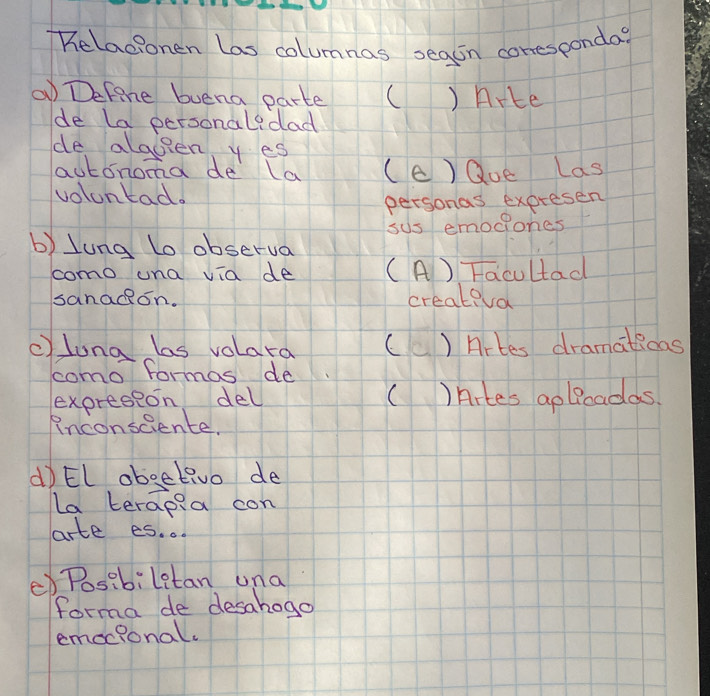 Relacionen las columnas según corresponda:
a) Define buena parte
de la personalidad
de alguien y es
autónoma de la
voluntad.
b) Jung lo observa
como una vía de
sanación.
c) Jung las volara
como formas de
expresión del
inconsciente.
d) El obgetivo de
la terápia con
arte es...
e) Posibilitan una
forma de desahogo
emocional.
( ) Arte
(e) Que las
personas expresen
sus emociones
(A) Facultad
creativa
( ) Artes dramáticas
( ) Artes aplicadas.